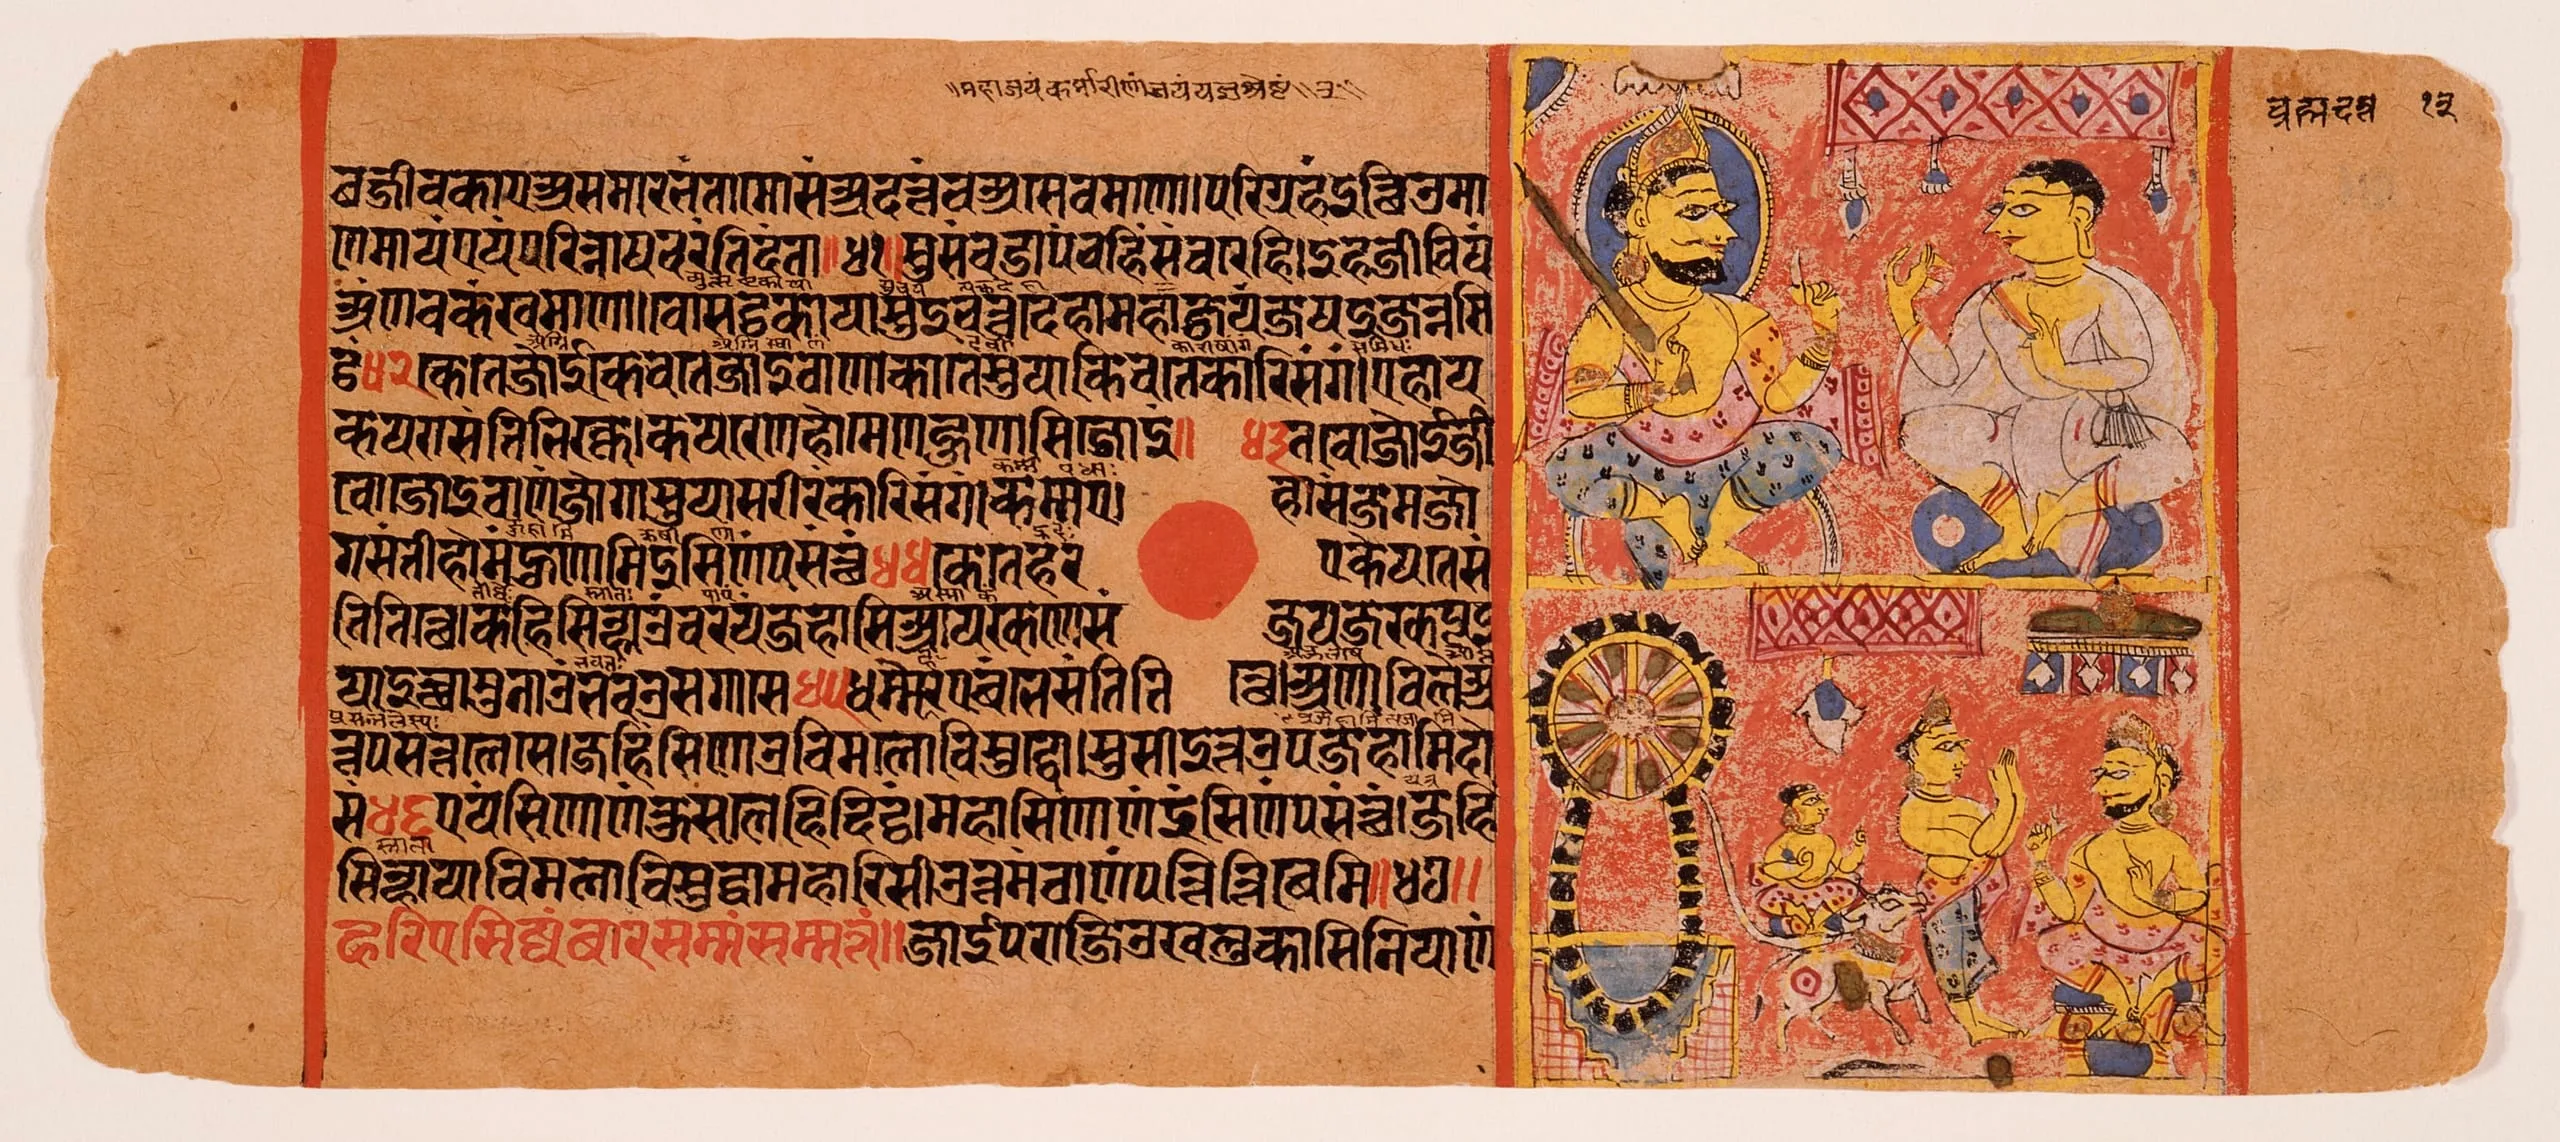 ॥महाजयं कर्मारीणां जयं यज्ञश्रेष्टं॥ २॥
ब्रह्मदत्त १३
छज्जीवकाए असमारभंता मोसं अदत्तं च असेवमाणा। परिग्रहं इत्थिओ मा
णमायं एयं परिन्नाय चरंति दंता॥४१॥ सुसंवुडा पंचहिं संवरेहि। इह जीवियं
अणवकंखमाणा। वोसट्टकाया सुइचत्तदेहा महाजयं जयइ जन्नसि
ट्ठं ४२ के ते जोई के व ते जोइठाणा का ते सुया किं व ते कारिसंगं। एहा य
कयरा संति भिक्खू कयरेण होमेण हुणासि जोइं॥ ४३ तवो जोई जी
वो जोइठाणं जोगा सुया सरीरं कारिसंगं। कम्मं ए हा संजमजो
ग संती होमं हुणामि इसिणं पसत्थं ४४ के ते हरए के य ते सं
ति तित्थे कहिं सि ण्हाओ व रयं जहासि आयक्ख णे संजय जक्खपूइ
या इच्छामु नाउं भवओ सगासे ४५ धम्मे हरए बंभे संति तित्थे अणाविले अ
त्तपसन्नलेसे। जहिं सि ण्हाओ विमलो विसुद्धो। सुसीइभूओ पजहामि दो
सं ४६ एयं सिणाणं कुसलेहि दिट्ठं। महासिणाणं इसिणं पसत्थं। जहिं
सि ण्हाया विमला विसुद्धा महारिसी उत्तमं ठाणं पत्ति त्ति बेमि॥४७॥
हरिएसिज्जं बारसमं सम्मत्तं॥ जाईपराजिओ खलु कासि नियाणं